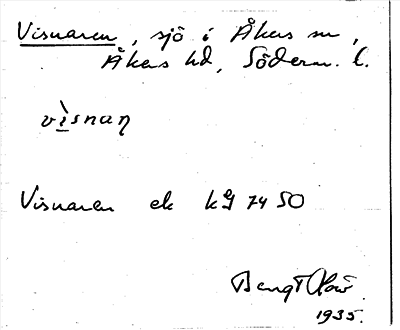 Visnaren, sjö i Åkers sn,
Åkers hd, Söderm. l.
vìsnaṇ
Visnaren ek kg 74 SO
Bengt
1935.